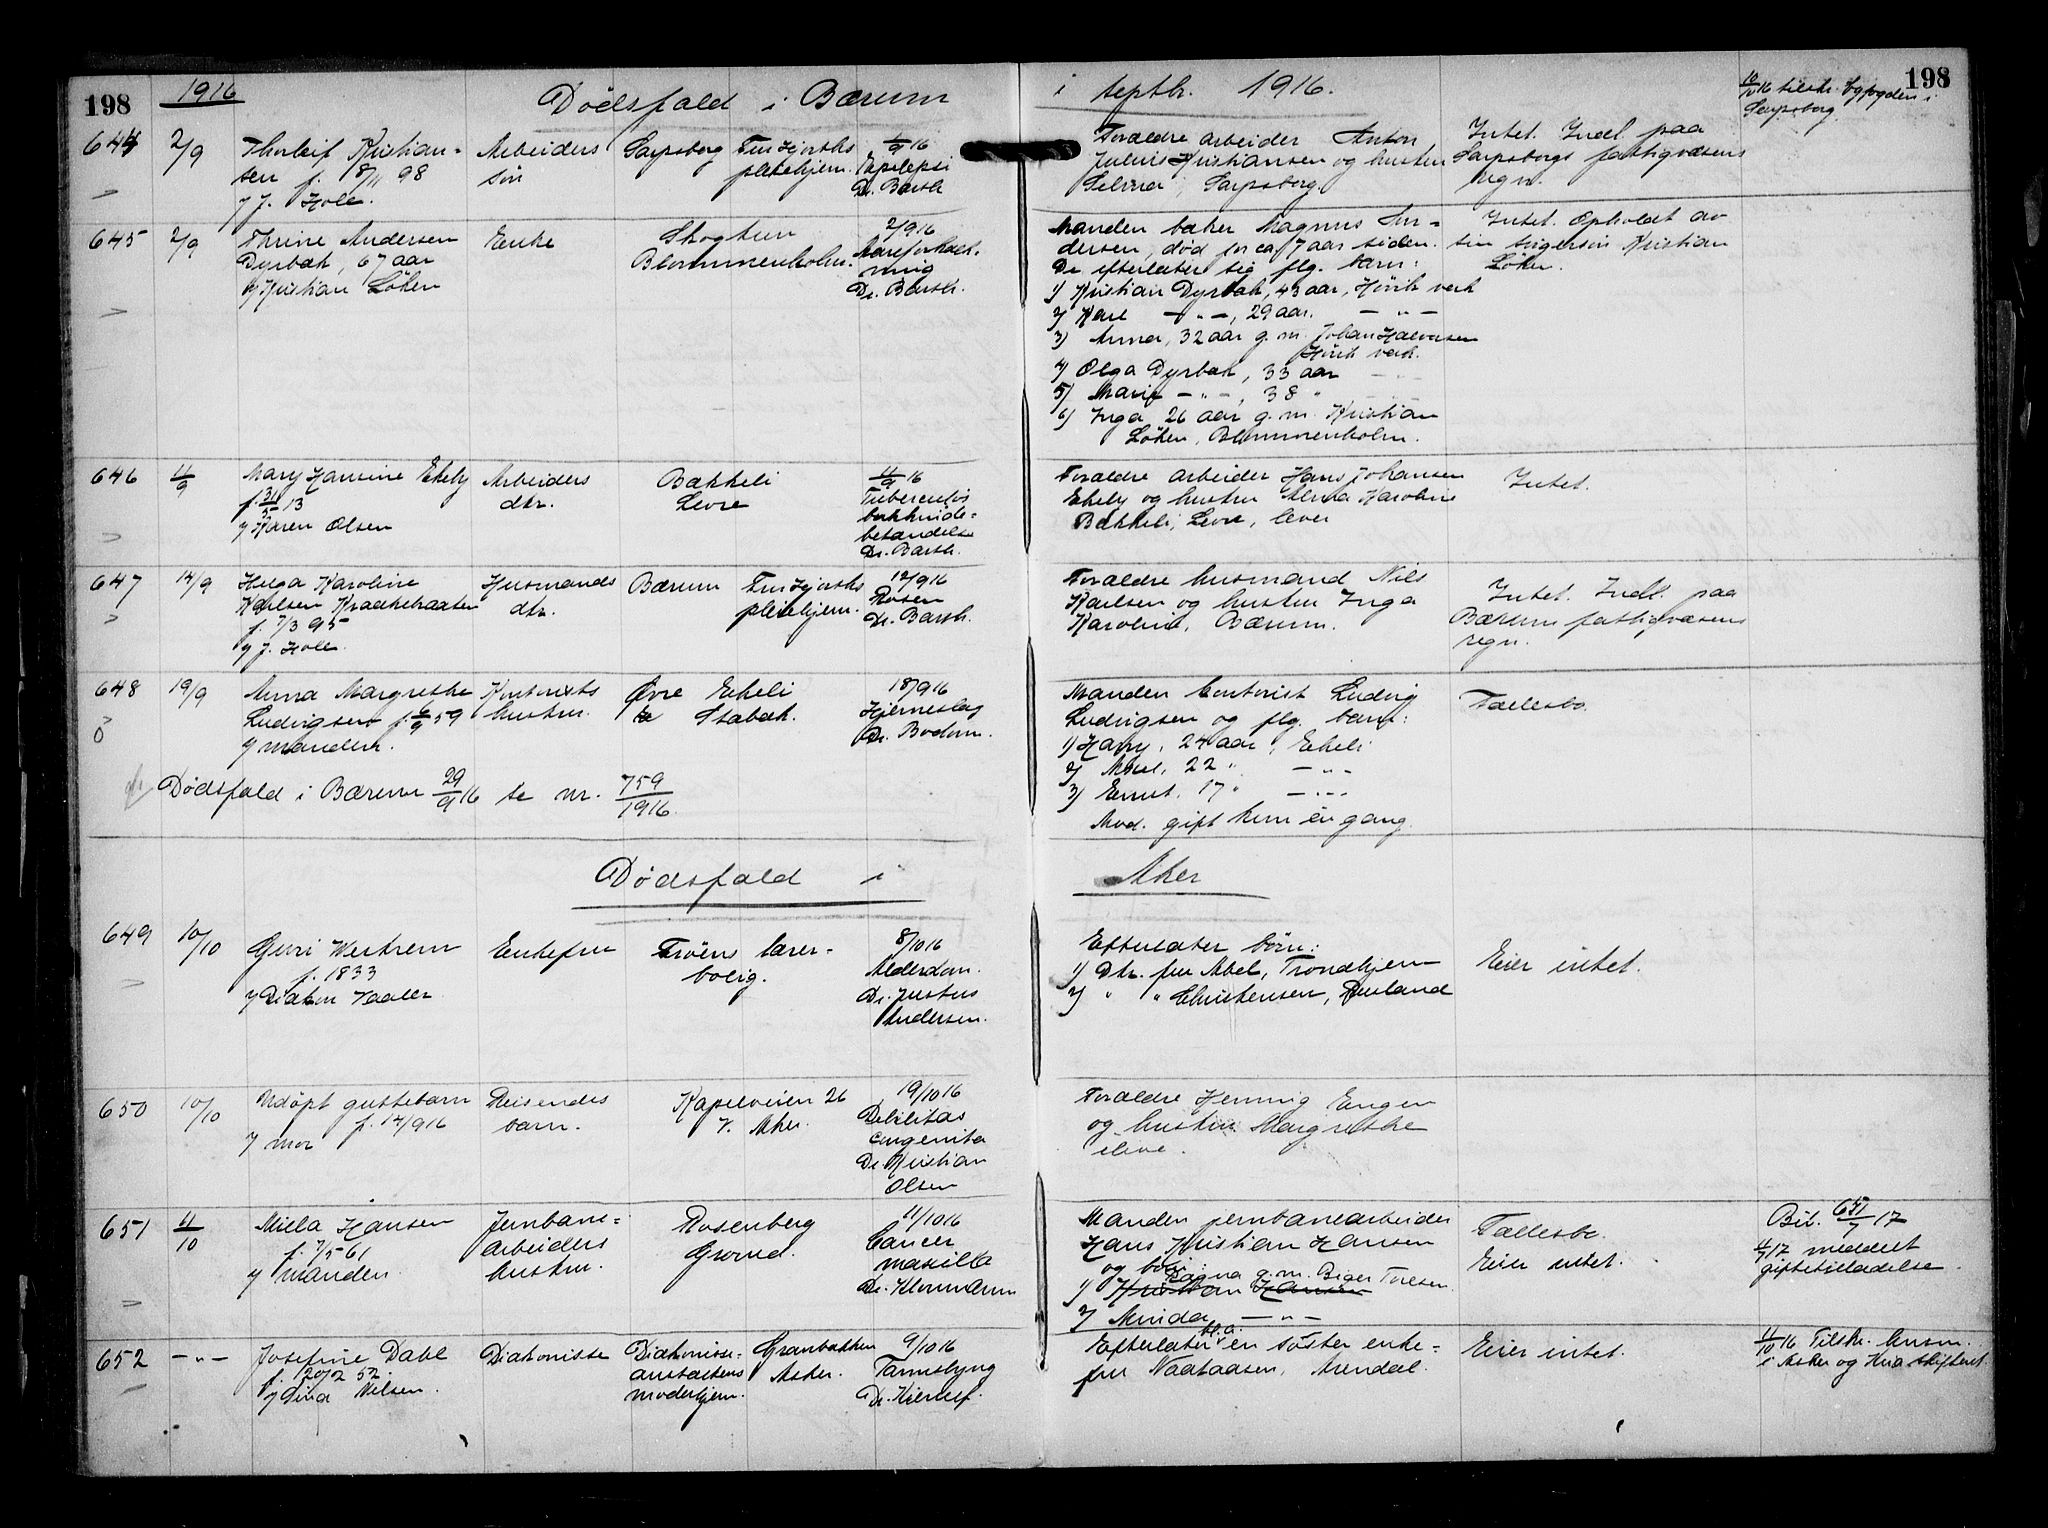 198
1916
Dödsfald i Bærum
i septbr. 1916.
198
10/10 16 tilskr. byfogden i
Sarpsborg
644
2/9
Thorleif Kristian-
sen f. 8/11 98
v/ J. Holl.
Arbeiders
sön
Sarpsborg
Fru Hjorths
pleiehjem.
1/9 16
Epilepsi
Dr. Barth
Forældre arbeider Anton
Julius Kristiansen og hustru
Selma, Sarpsborg.
Intet. Indl. paa
Sarpsborgs fattigvæsens
regn.
645
2/9
Thrine Andersen
Dyrbak, 67 aar
v/ Kristian Löken
Enke
Skogtun
Blommenholm.
2/9 16
Aareforkalk-
ning
Dr. Barth.
Manden baker Magnus An-
dersen, död for ca 7 aar siden.
De efterlater sig flg. barn:
1) Kristian Dyrbak, 43 aar, Hörik verk
2) Karl — " —, 29 aar. — " —
3) Anna, 32 aar g. m. Johan Halvorsen
Hörik verk.
4) Olga Dyrbak, 33 aar — " —
5) Marie — " —, 38 "
6) Inga 26 aar g. m. Kristian
Löken, Blommenholm.
Intet. Opholdt av
sin svigersön Kristian
Löken.
646
11/9
Mary Hansine Ekely
f. 31/5 13
v/ Karen Olsen
Arbeiders
dtr.
Bakkeli
Levre
11/9 16
Tuberculös
bukhinde-
betændelse
Dr. Barth.
Forældre arbeider Hans Johansen
Ekely og hustru Alma Karoline
Bakkeli, Levre, lever
Intet.
647
14/9
Helga Karoline
Karlsen Kraakebraaten
f. 7/3 95
v/ J. Holl.
Husmands
dtr.
Bærum
Fru Hjorths
pleiehjem.
12/9 16
Rosen
Dr. Barth.
Forældre husmand Nils
Karlsen og hustru Inga
Karoline, Bærum.
Intet. Indl. paa
Bærum fattigvæsens
regn.
648
19/9
Anna Margrethe
Ludvigsen f. 6/9 59
v/ manden.
Kontorists
hustru.
Övre Ekeli
Stabæk.
18/9 16
Hjerneslag
Dr. Bodom.
Manden kontorist Ludvig
Ludvigsen og flg. barn:
1) Harry, 24 aar, Ekeli
2) Aksel, 22 " — " —
3) Ernst, 17 " — " —
Avd. gift kun én gang.
Fællesbo.
Dödsfald i Bærum 29/9 16 se nr. 759/1916.
Dödsfald i
Aker
649
10/10
Guri Westrem
f. 1833
v/ Diakon Vaaler
Enkefru
Fröens lærer-
bolig.
8/10 16
Alderdom.
Dr. Justus
Andersen.
Efterlater börn:
1) Dtr. fru Abel, Trondhjem
2) " " Christensen, Rusland
Eier intet.
650
10/10
Udöpt guttebarn
f. 14/9 16
v/ mor
Reisendes
barn.
Kapelveien 26
V. Aker.
19/10 16
Debilitas
congenita
Dr. Kristian
Olsen
Forældre Henning Engen
og hustru Margrethe
ilive.
651
11/10
Milla Hansen
f. 7/5 61
v/ manden
Jernbane-
arbeiders
hustru.
Rosenberg
Grorud.
11/10 16
Cancer
maxilla
Manden jernbanearbeider
Hans Kristian Hansen
og börn:
Ragna g. m. Birger Toresen.
1) Kristian Hansen
2) Minda — " —
Fællesbo.
Eier intet.
Bil. 651/7 17
4/7 17 meddelt
giftetilladelse.
652
— " —
Josefine Dahl
f. 20/2 52
v/ Lina Nilsen.
Diakonisse
Diakonisse-
anstaltens
moderhjem.
Granbakken
Asker.
9/10 16
Tarmslyng
Dr. Kierulf.
Efterlater bl.a. en söster enke-
fru Naataasen, Arendal.
Eier intet.
11/10 16 Tilskr. lensm.
i Asker og Kria skifteret.